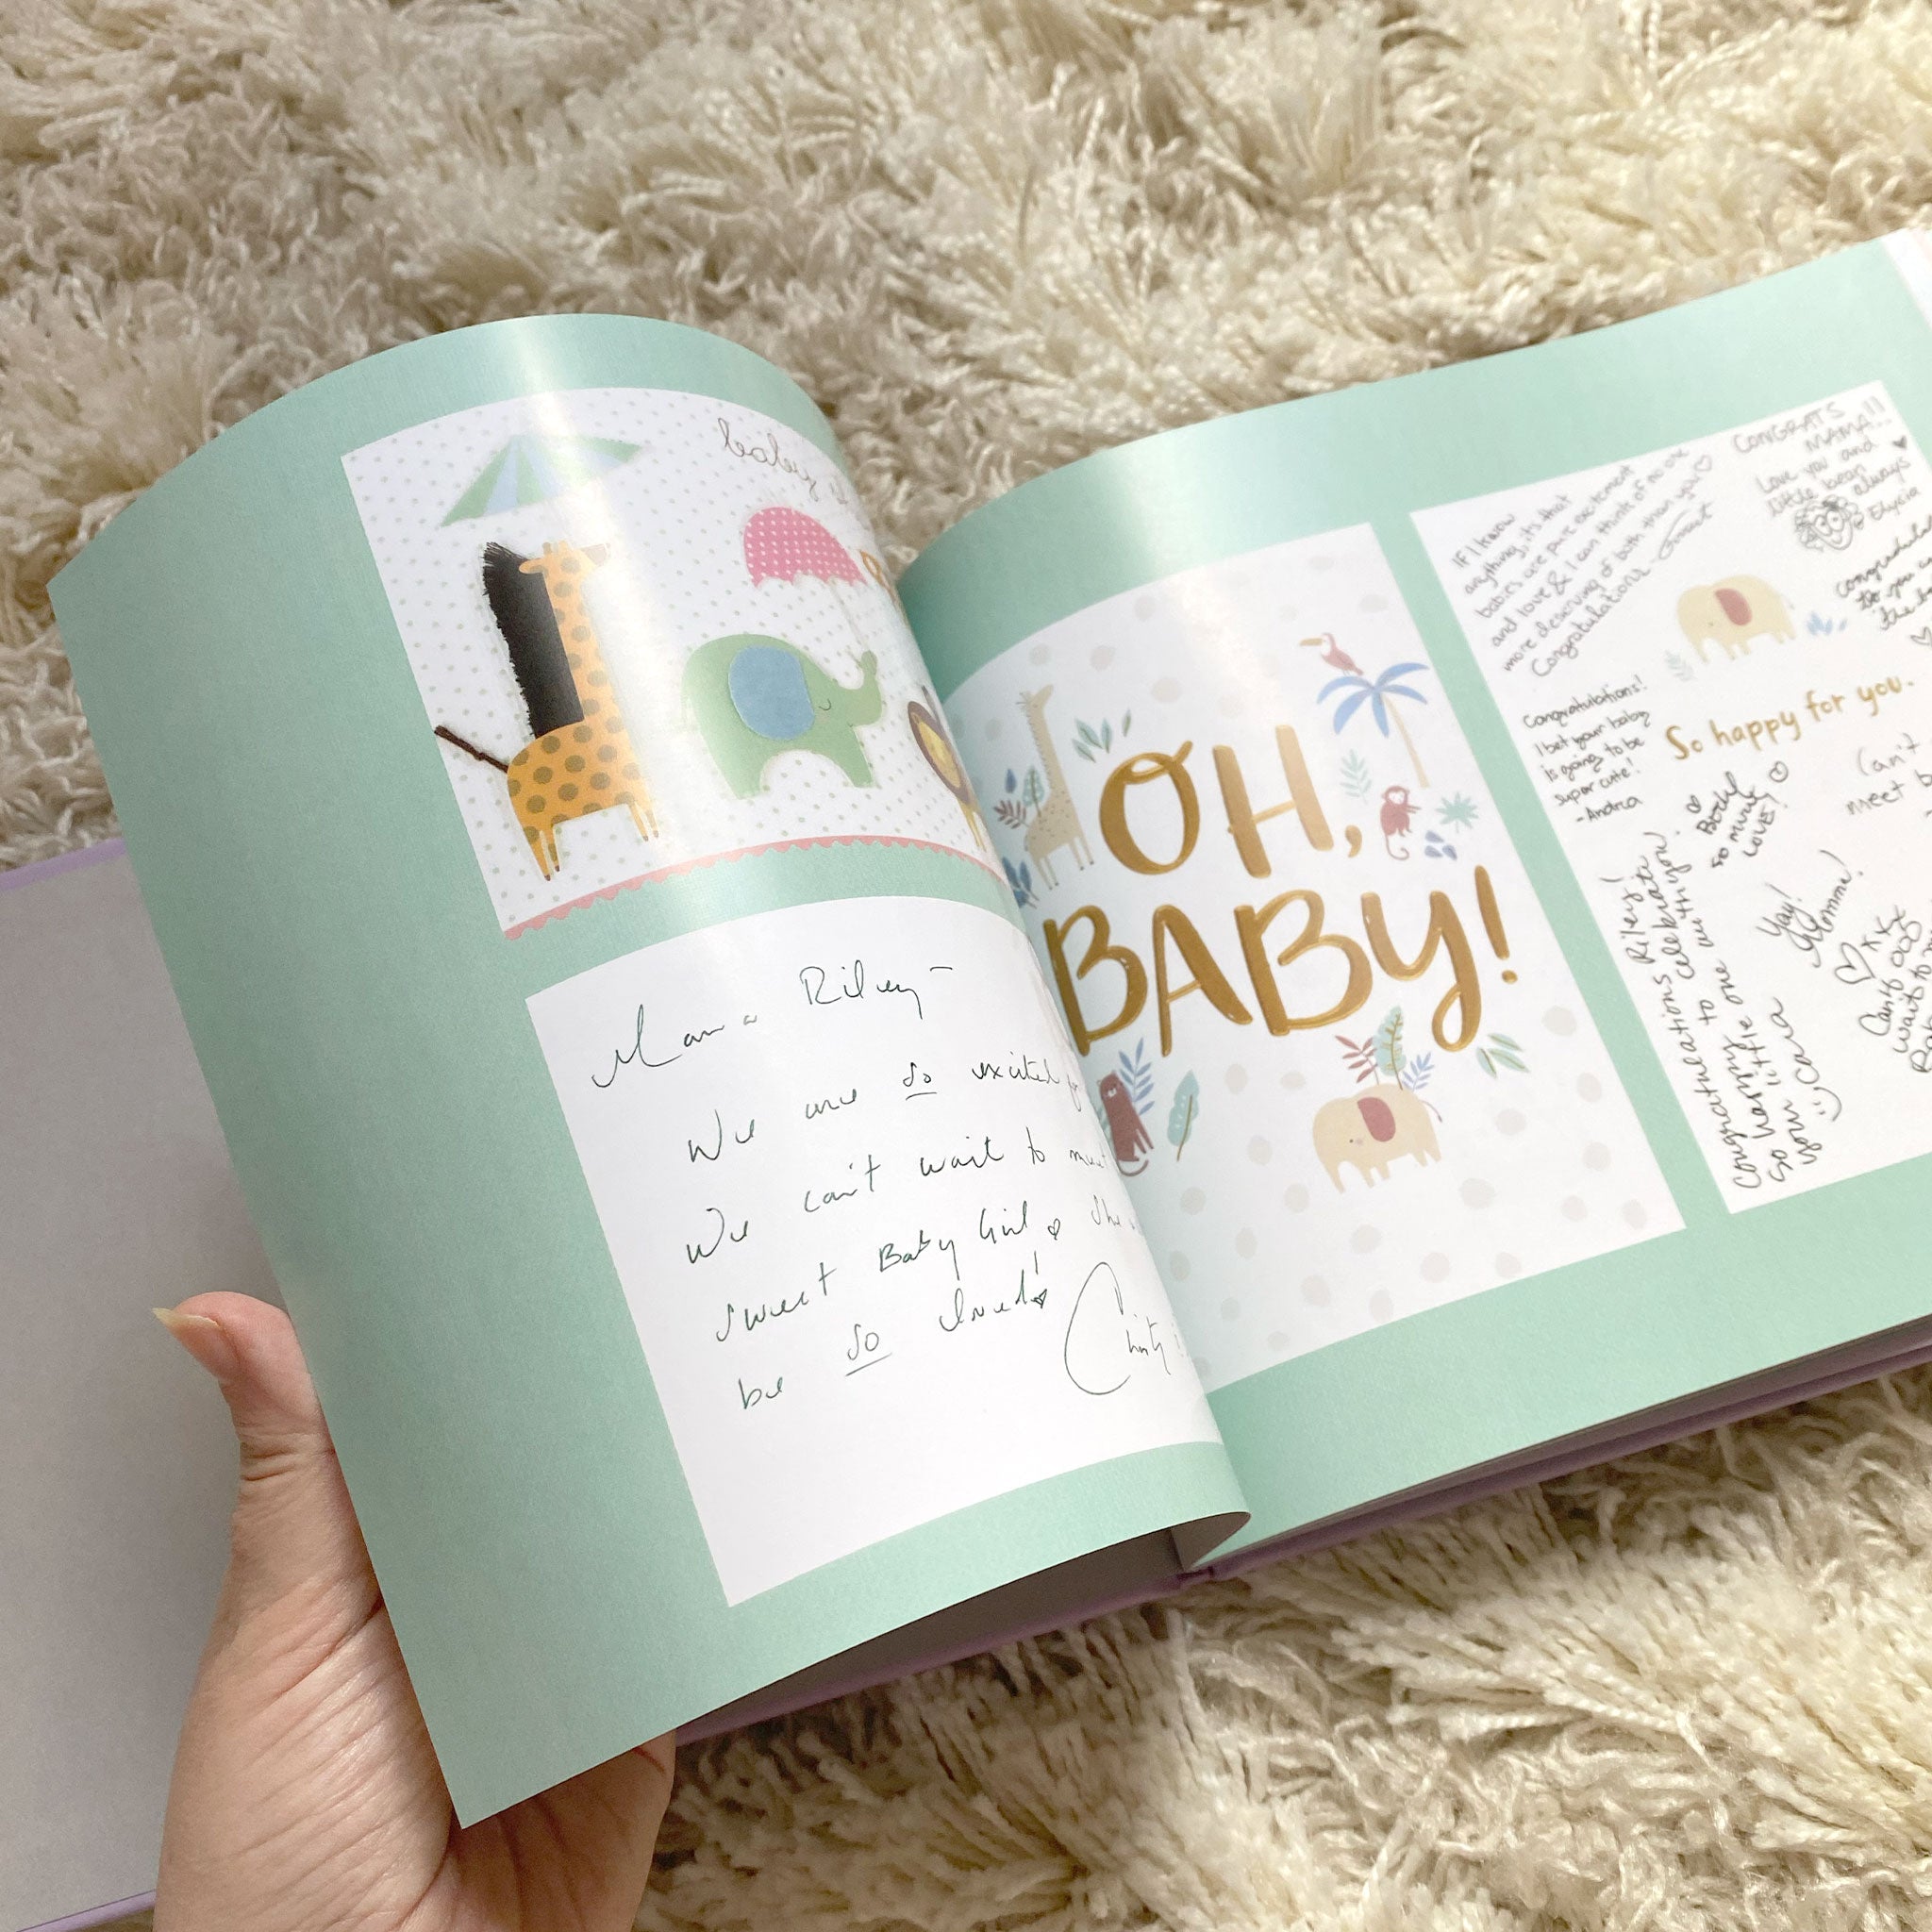 baby
Mama Riley-
We are so excited
We can't wait to meet
sweet Baby Girl She
be so loved!
Christy
OH,
BABY!
If I know
anything, it's that
babies are pure excitement
and love & I can think of no one
more deserving of both than you
Congratulations -
CONGRATS
MAMA!!
Love you and
little bean
always
Elycia
So happy for you.
Congratulations!
I bet your baby
is going to be
super cute!
- Andrea
so much
LOVE!
Can't
meet
Congratulations Riley!
So happy to celebrate
your little one with you.
:) Cara
Yay!
Go Momma!
Can't
wait to